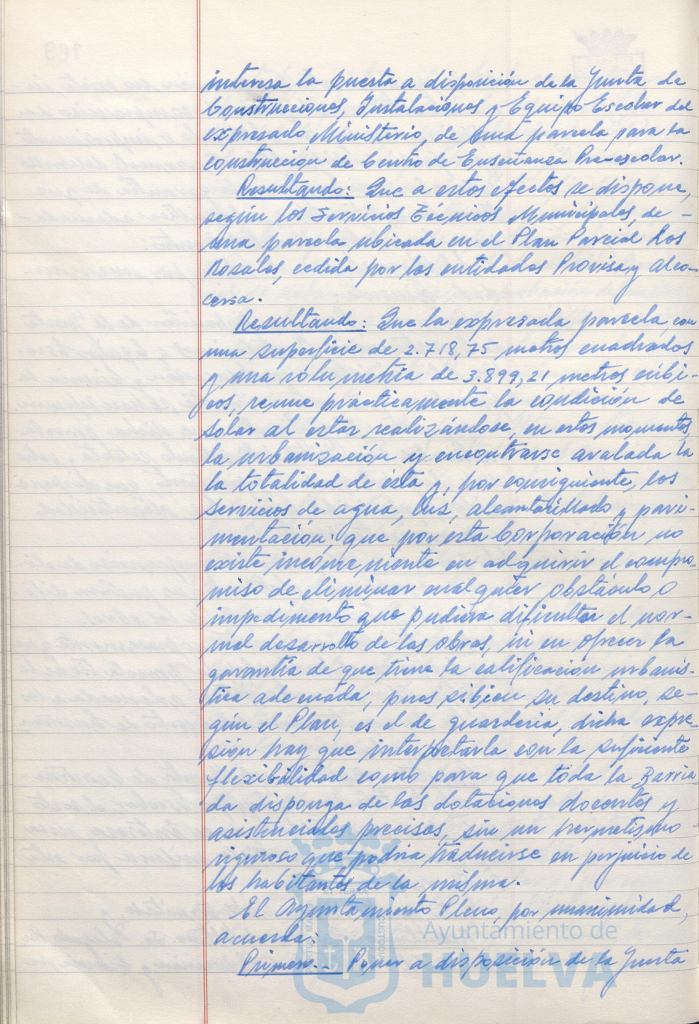 interesa la puesta a disposición de la Junta de
Construcciones, Instalaciones y Equipo Escolar del
expresado Ministerio, de una parcela para la
construcción de Centro de Enseñanza Preescolar.
Resultando: Que a estos efectos se dispone,
según los Servicios Técnicos Municipales, de
una parcela ubicada en el Plan Parcial Los
Rosales, cedida por las entidades Provisa y Alco-
cersa.
Resultando: Que la expresada parcela, con
una superficie de 2.718,75 metros cuadrados
y una volumetria de 3.899,21 metros cúbi-
cos, reune prácticamente la condición de
solar al estar realizándose, en estos momentos
la urbanización y encontrarse avalada la
la totalidad de ésta y, por consiguiente, los
servicios de agua, luz, alcantarillado y pavi-
mentación; que por esta Corporación no
existe inconveniente en adquirir el compro-
miso de eliminar cualquier obstáculo o
impedimento que pudiera dificultar el nor-
mal desarrollo de las obras, ni en ofrecer la
garantía de que tiene la calificación urbanís-
tica adecuada, pues si bien su destino, se-
gún el Plan, es el de guarderia, dicha expre-
sión hay que interpretarla con la suficiente
flexibilidad como para que toda la Barria
da disponga de las dotaciones docentes y
asistenciales precisas, sin un hermetismo
riguroso que podria traducirse en perjuicio de
los habitantes de la misma.
El Ayuntamiento Pleno, por unanimidad,
acuerda:
Primero.- Poner a disposición de la Junta
Ayuntamiento de
HUELVA